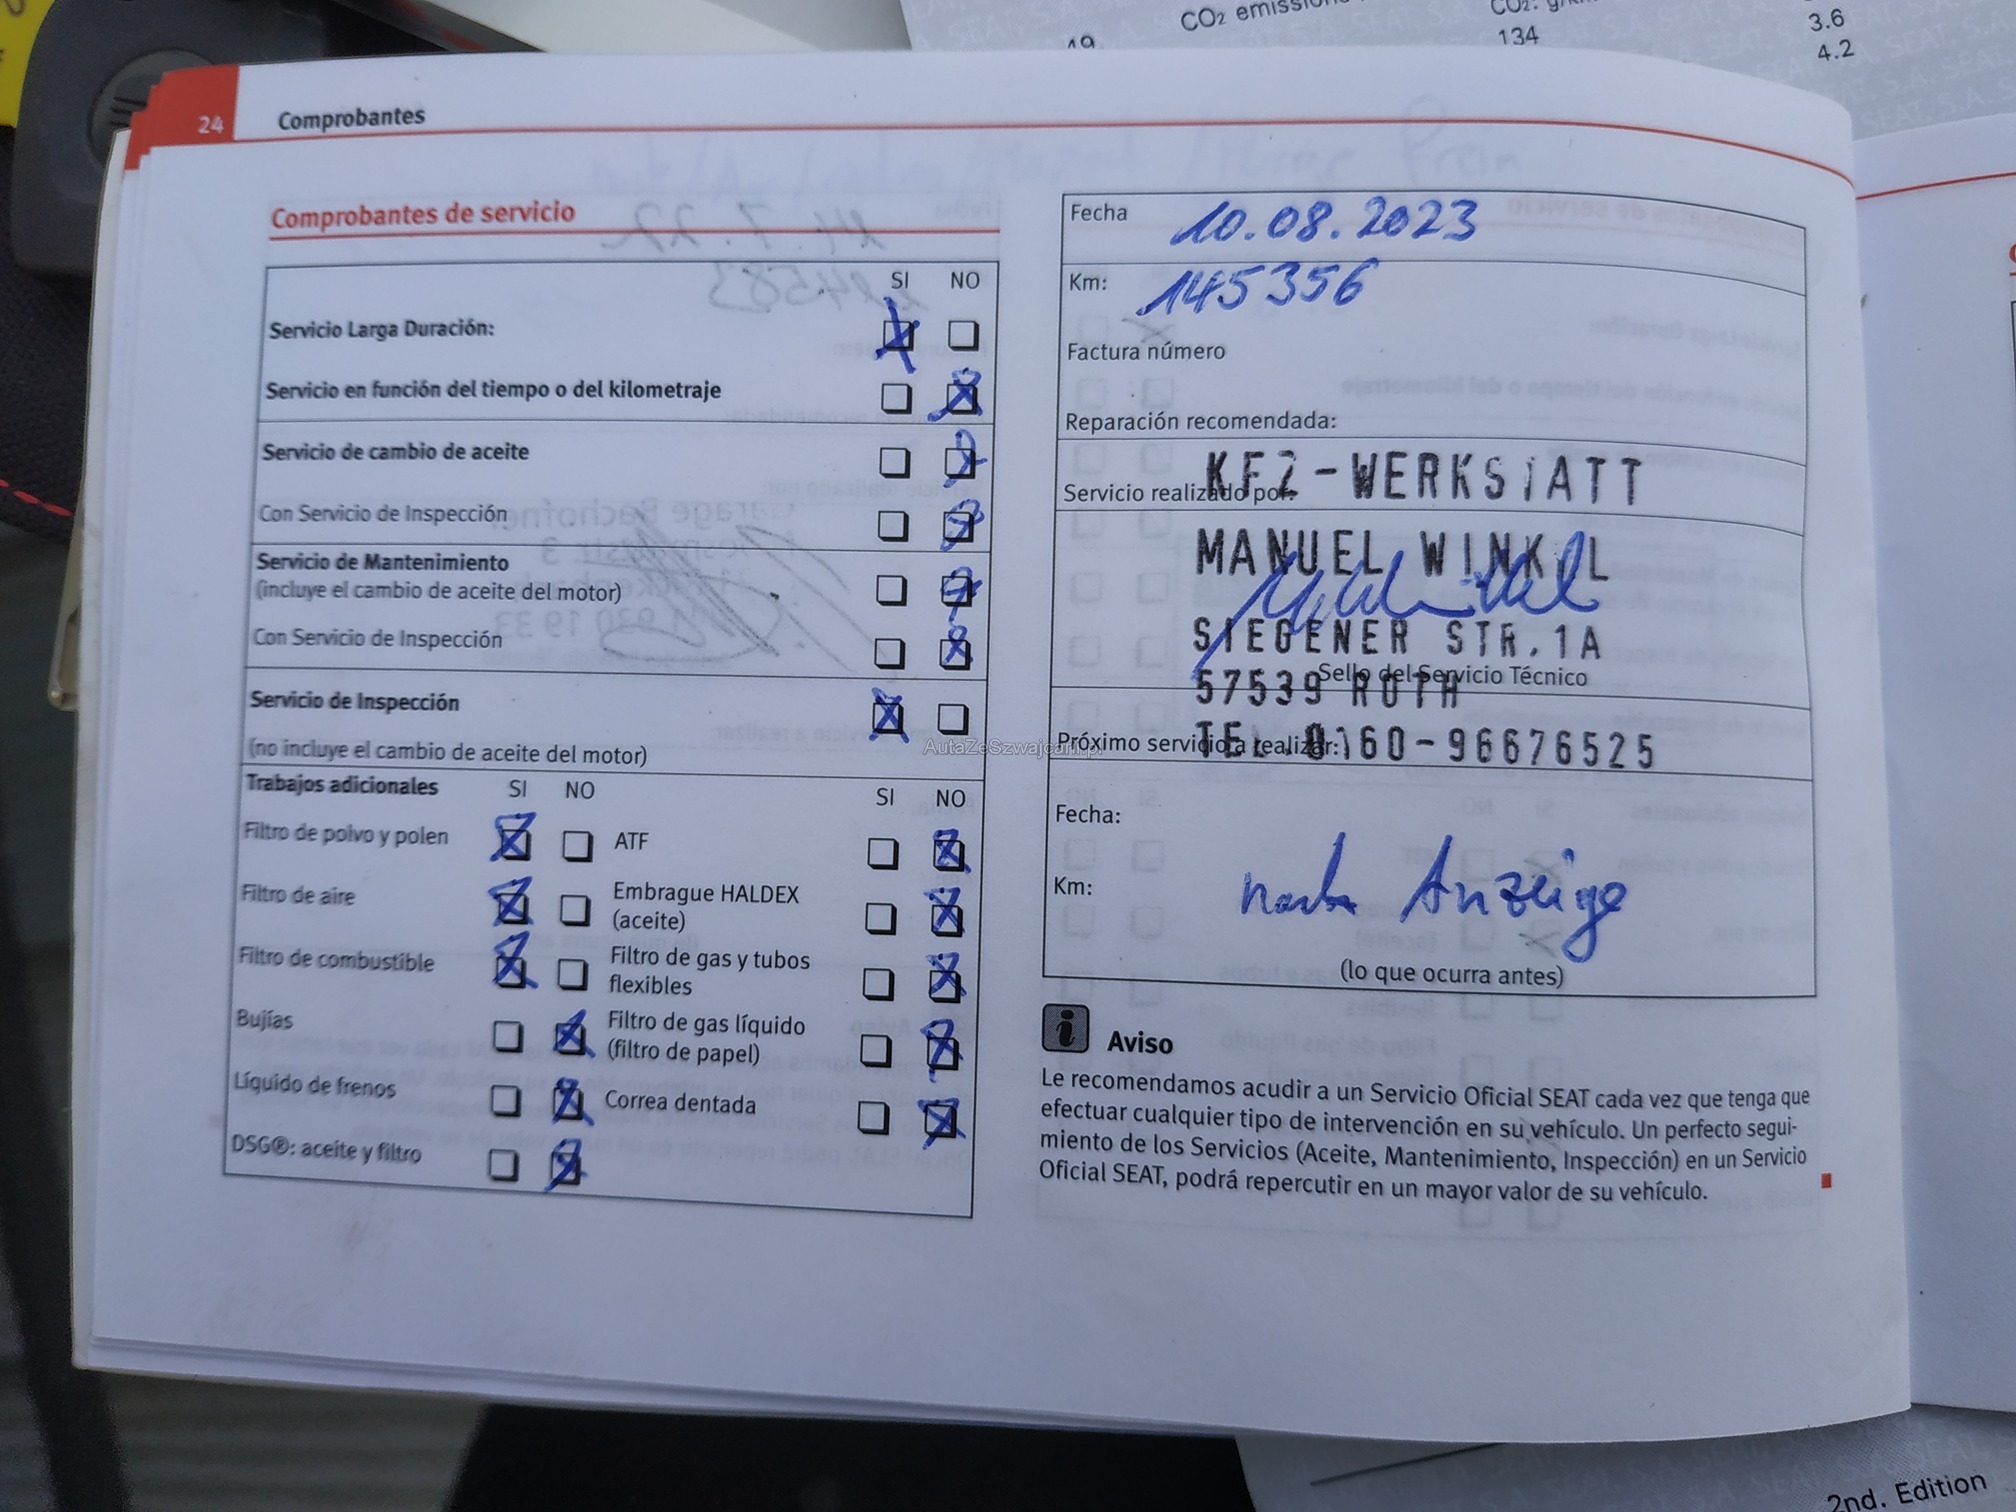 CO₂ emission
134
3.6
4.2
24 Comprobantes
Comprobantes de servicio
SI NO
Servicio Larga Duración:
Servicio en función del tiempo o del kilometraje
Servicio de cambio de aceite
Con Servicio de Inspección
Servicio de Mantenimiento
(incluye el cambio de aceite del motor)
Con Servicio de Inspección
Servicio de Inspección
(no incluye el cambio de aceite del motor)
Trabajos adicionales SI NO SI NO
Filtro de polvo y polen
ATF
Filtro de aire
Embrague HALDEX
(aceite)
Filtro de combustible
Filtro de gas y tubos
flexibles
Bujías
Filtro de gas líquido
(filtro de papel)
Líquido de frenos
Correa dentada
DSG®: aceite y filtro
Fecha 10.08.2023
Km: 145356
Factura número
Reparación recomendada:
KFZ-WERKSTATT
Servicio realizado por:
MANUEL WINKEL
SIEGENER STR. 1A
Sello del Servicio Técnico
57539 ROTH
TEL. 0160-96676525
Próximo servicio a realizar:
Fecha:
Km: nach Anzeige
(lo que ocurra antes)
i Aviso
Le recomendamos acudir a un Servicio Oficial SEAT cada vez que tenga que
efectuar cualquier tipo de intervención en su vehículo. Un perfecto segui-
miento de los Servicios (Aceite, Mantenimiento, Inspección) en un Servicio
Oficial SEAT, podrá repercutir en un mayor valor de su vehículo.
AutaZeSzwajcarii.pl
2nd. Edition